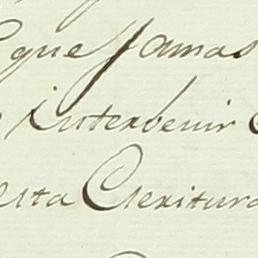 que Jamas
intervenir
esta Escritura